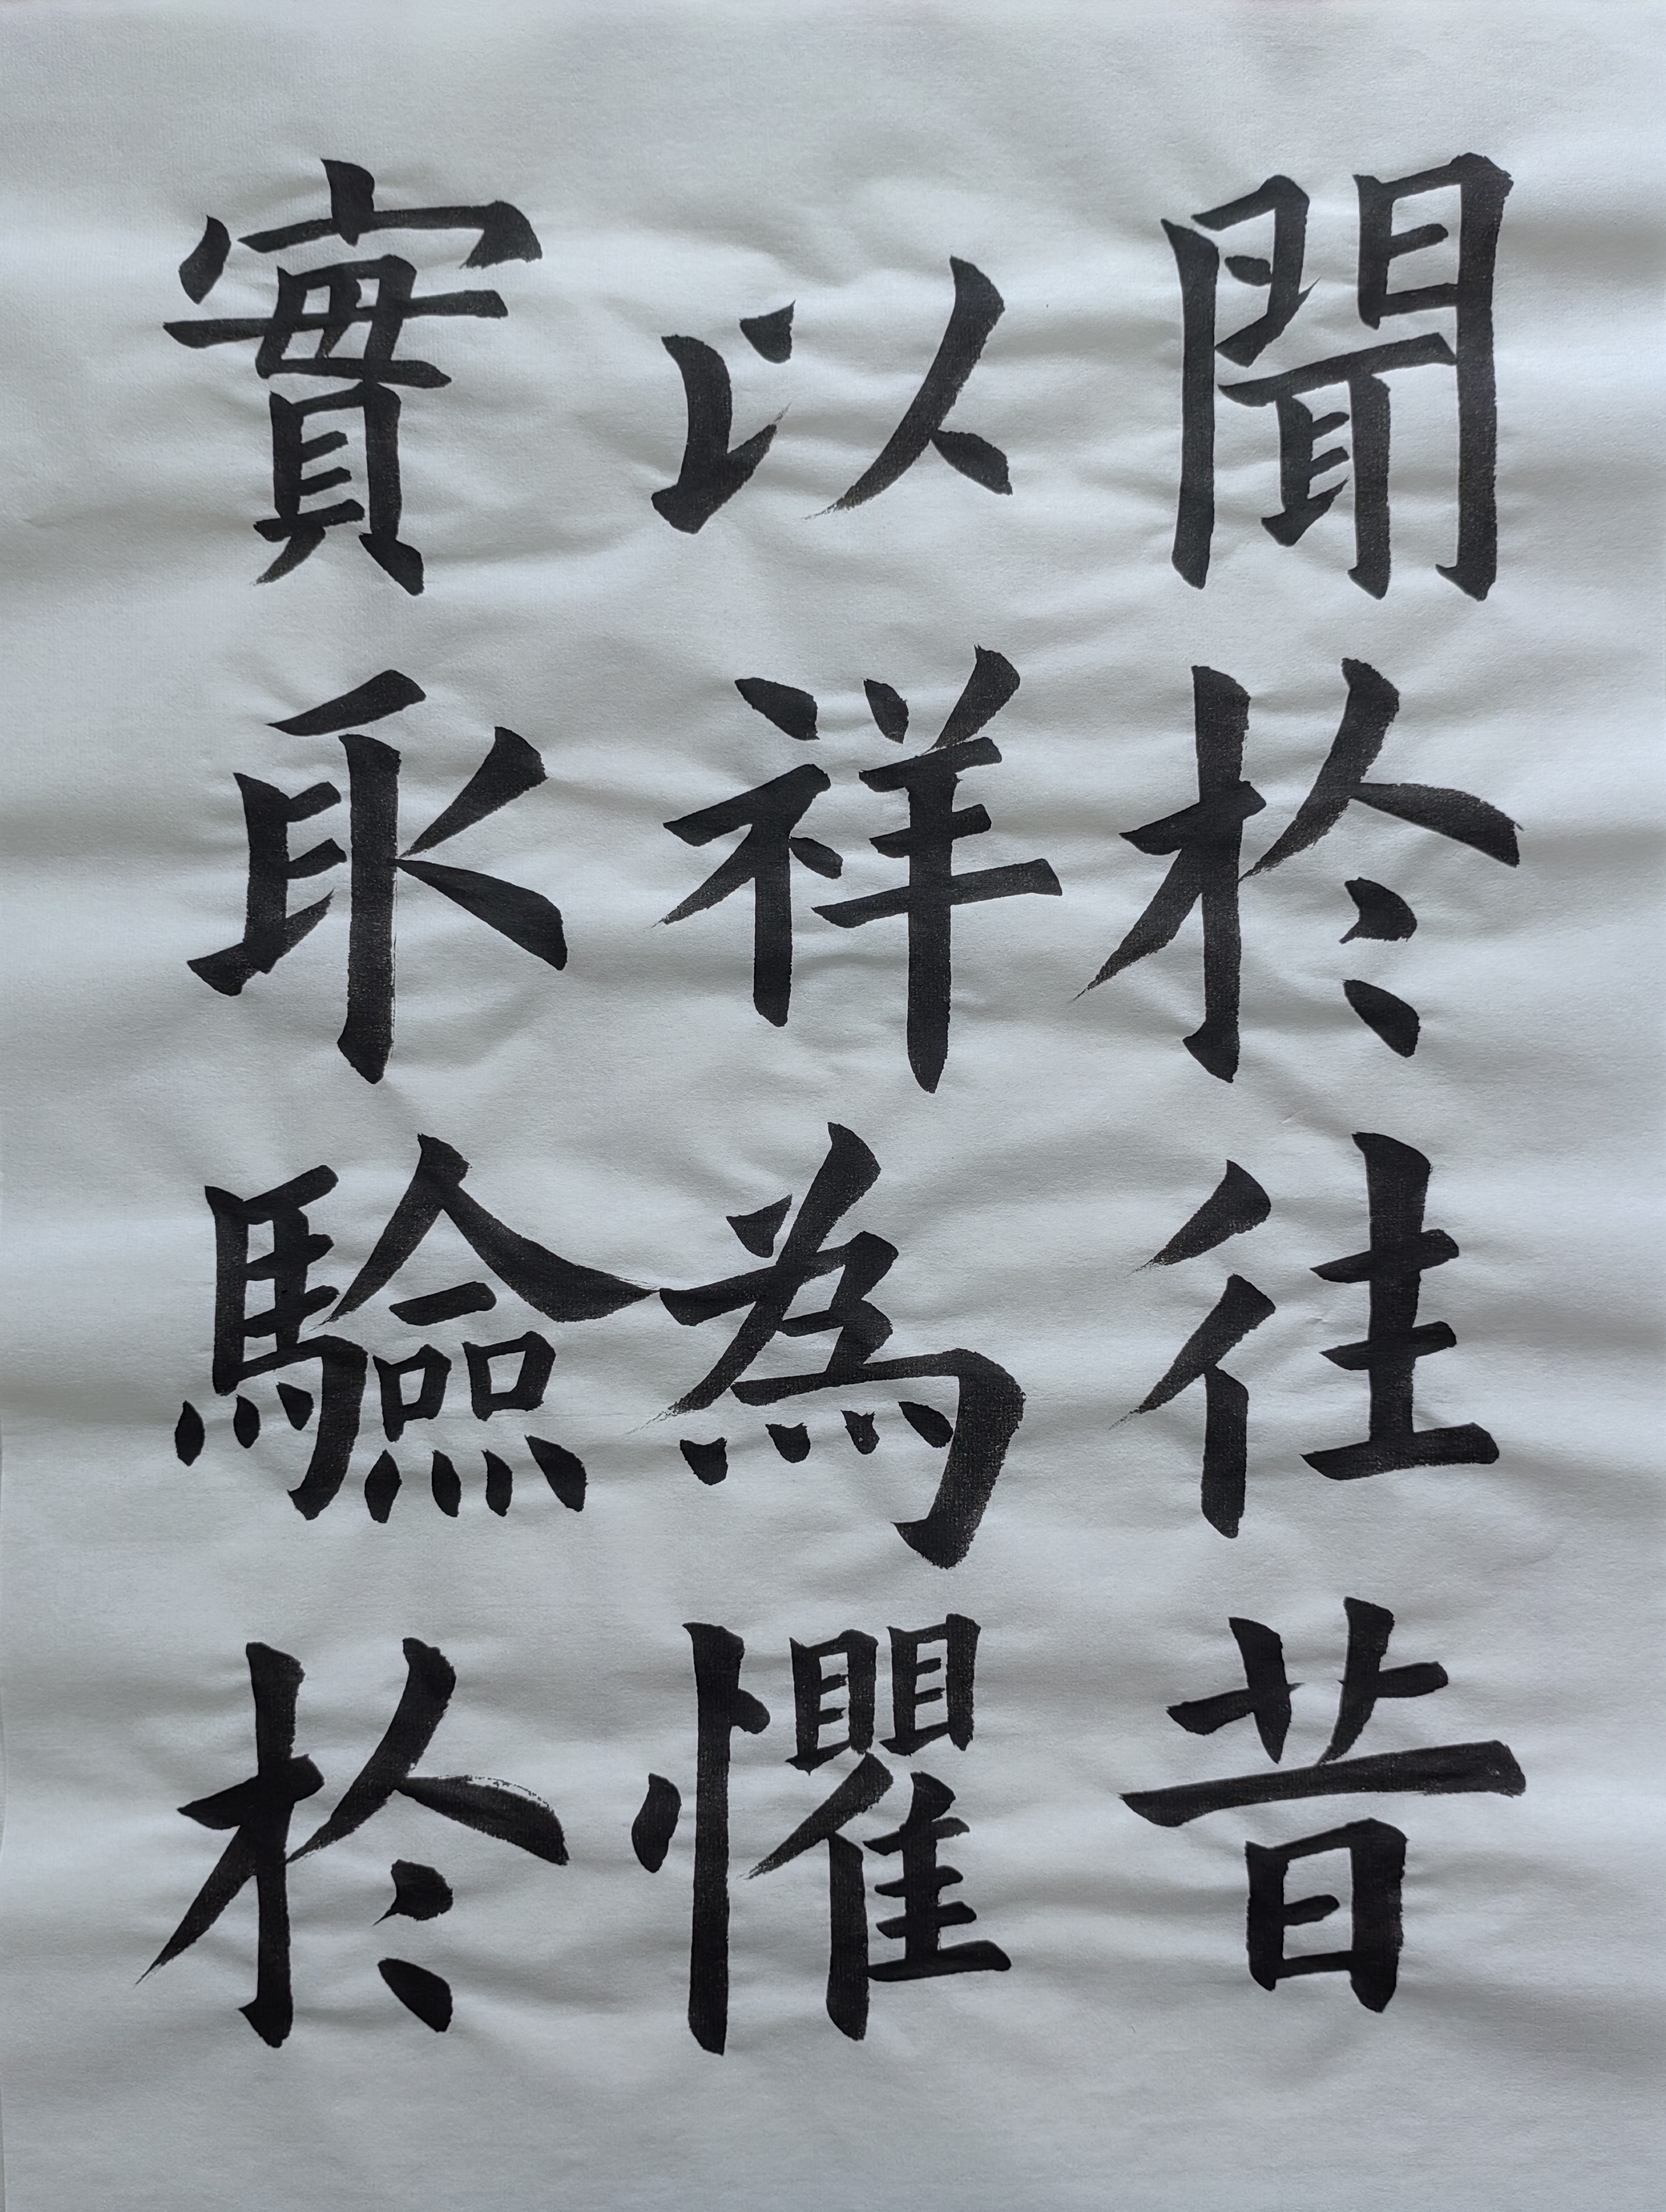 聞於往昔
以祥為懼
實取驗於